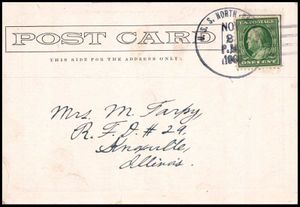 POST CARD
THIS SIDE FOR THE ADDRESS ONLY.
U. S. S. NORTH
NO
2
P.M.
190
U.S. POSTAGE
ONE CENT
Mrs. M. Tarpy
R. F. D. # 29,
Knoxville,
Illinois.